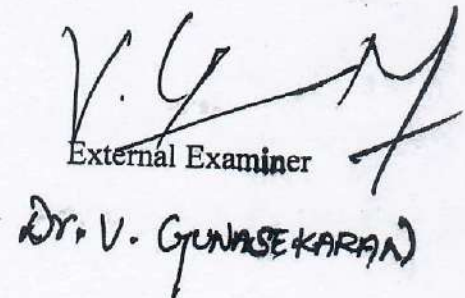 V. G
External Examiner
Dr. V. GUNASEKARAN